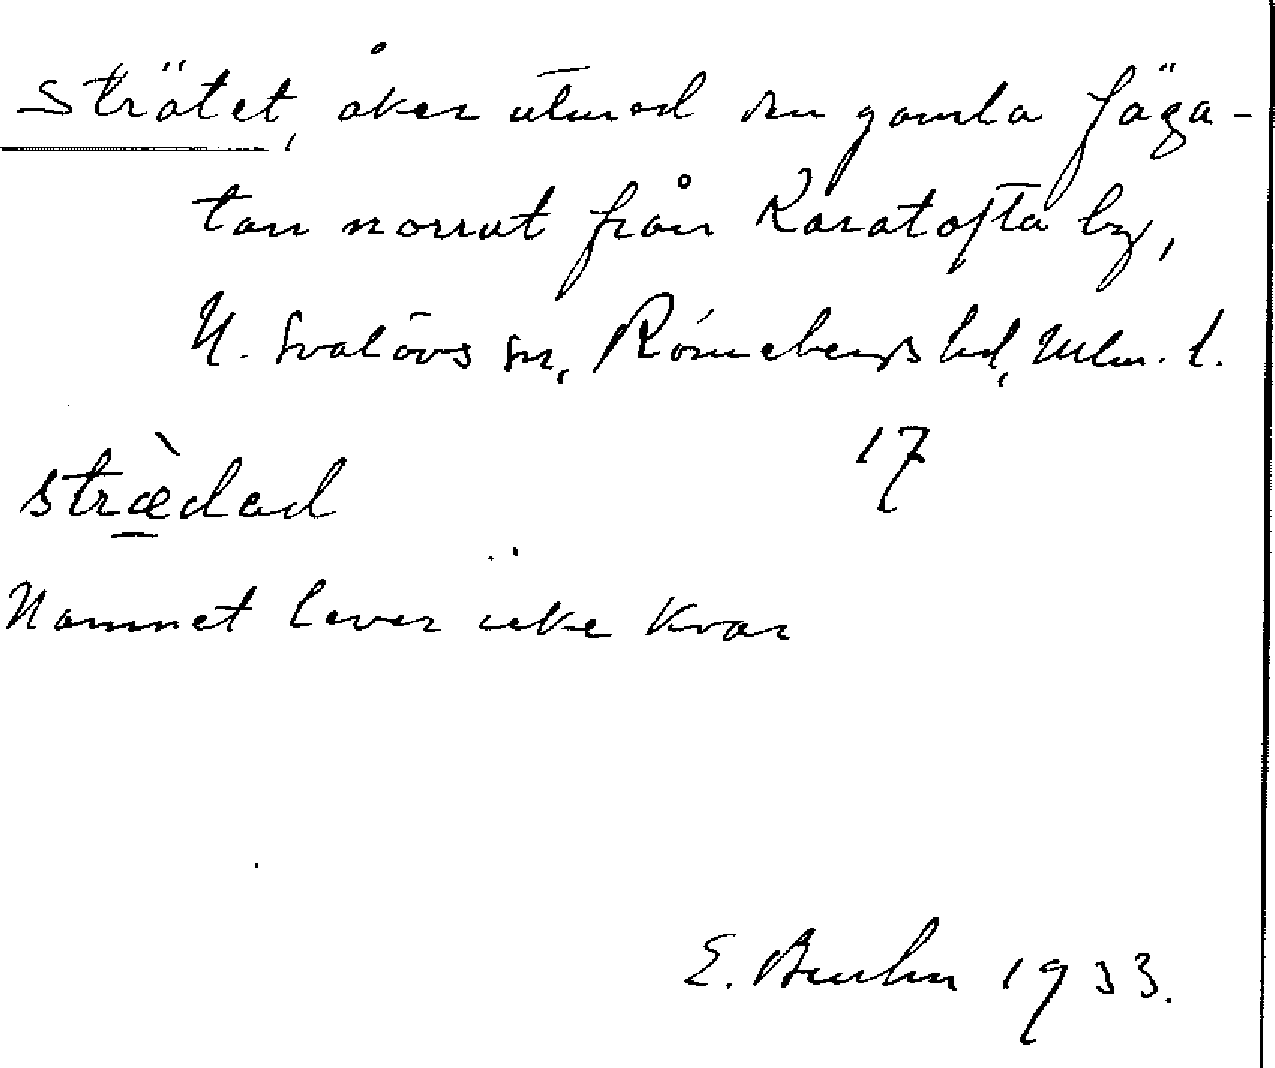 Strätet, åker utmed den gamla fäga-
tan norrut från Karatofta by,
N. Svalövs sn, Rönnebergs hd, Mlm. l.
17
strædad
Namnet lever icke kvar
E. Bruhn 1933.